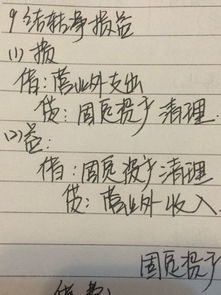 9结转净损益
(1)损
借:营业外支出
贷:固定资产清理
(2)益:
借:固定资产清理
贷:营业外收入
固定资产